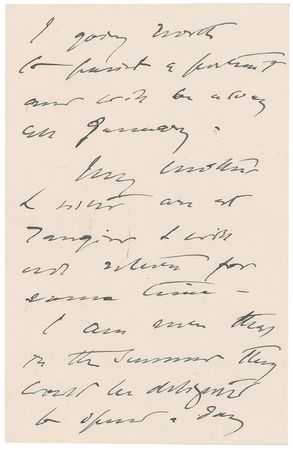 I going north
to paint a portrait
and will be away
all January.
My mother
& sister are at
Tangier & will
not return for
some time —
I am sure that
in the summer they
would be delighted
to spend a day